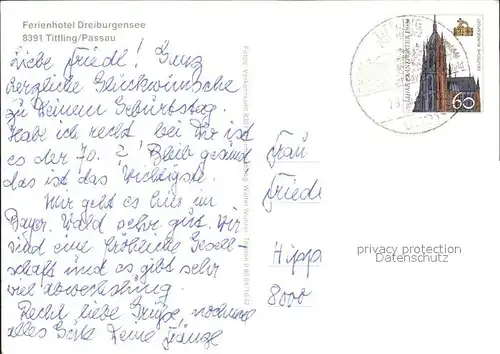 Ferienhotel Dreiburgensee
8391 Tittling/Passau
Liebe Friedl! Ganz
herzliche Glückwünsche
zu Deinem Geburtstag.
Habe ich recht bei Dir ist
es der 70. ?! Bleib gesund
das ist das Wichtigste.
Mir geht es hier im
Bayer. Wald sehr gut. Wir
sind eine fröhliche Gesell-
schaft und es gibt sehr
viel Abwechslung.
Recht liebe Grüße, nochmal
alles Gute Deine
Frau
Friede
Hipp
8000
60
DEUTSCHE BUNDESPOST
privacy protection
Datenschutz